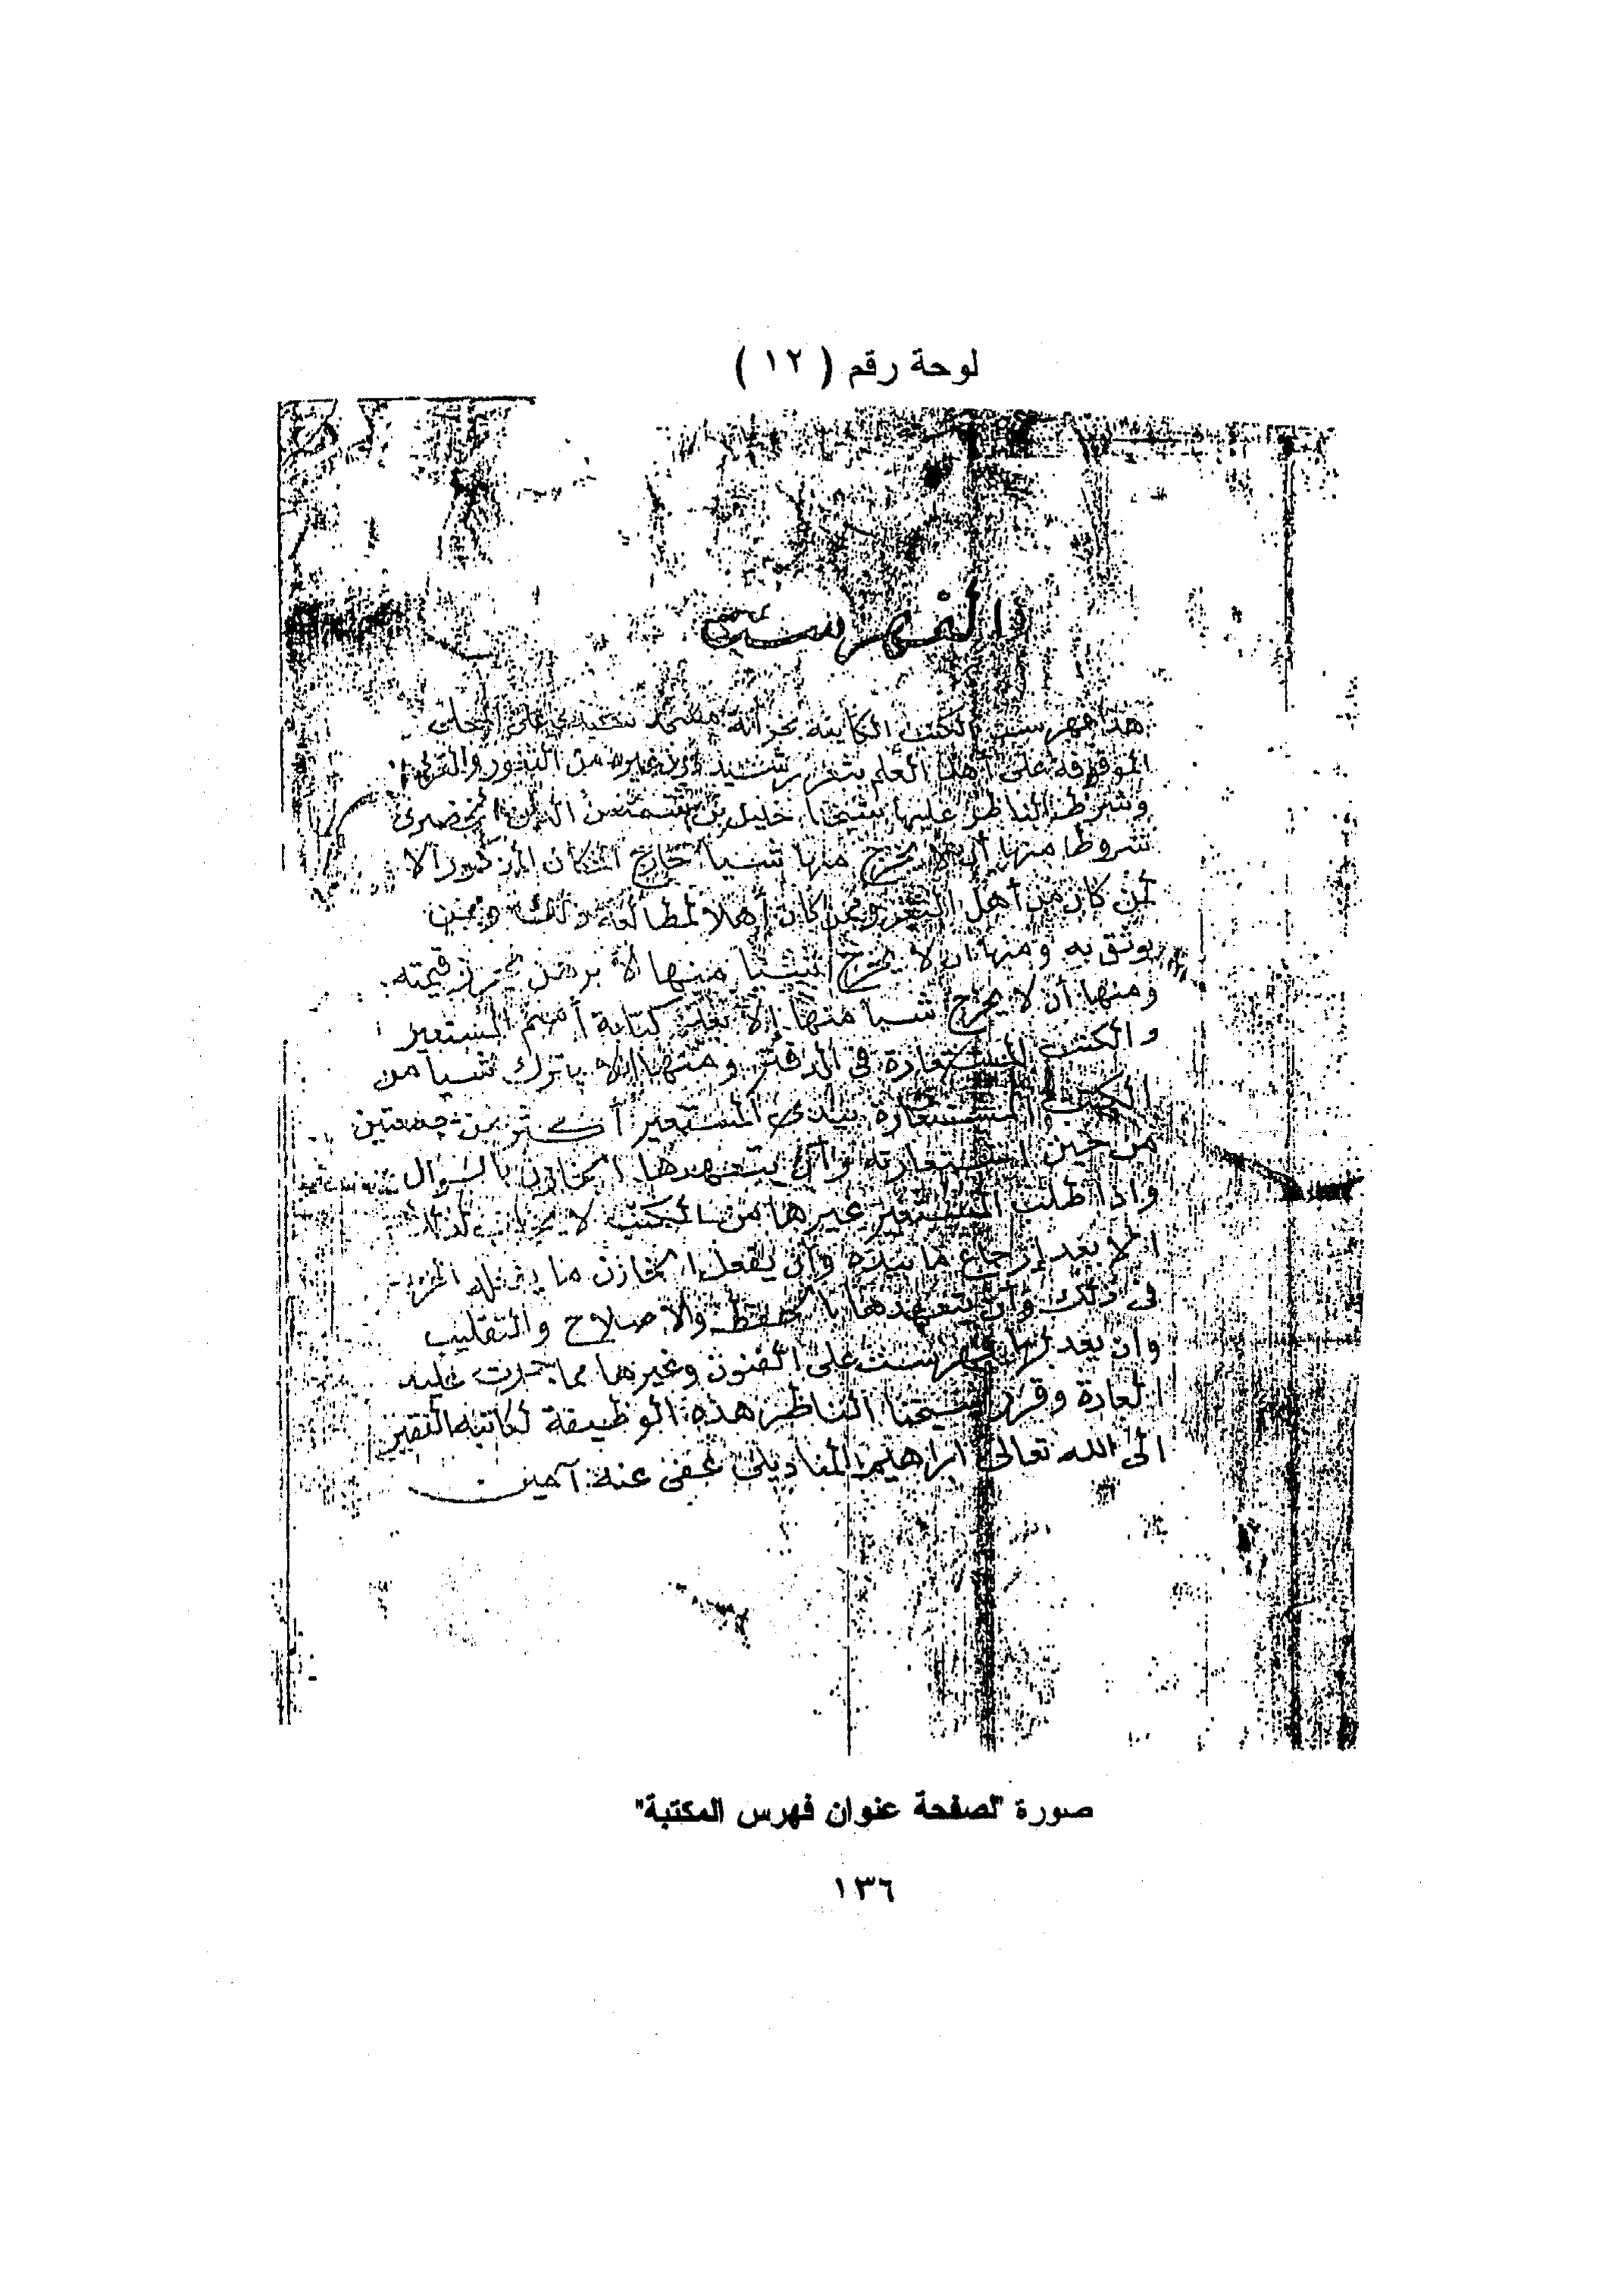 لوحة رقم ( ١٢ )
الفهرست
هذا فهرست الكتب الكاينة بخزانة سيدى على المحلى
الموقوفة على أهل العلم بثغر رشيد دون غيره من الثغور والقرى
وشرط الناظر عليها شيخنا خليل بن شمس الدين الخضرى
شروطا منها أن لا يخرج منها شيا خارج المكان المذكور الا
لمن كان من أهل الثغر وممن كان أهلا لمطالعة ذلك وممن
يوثق به ومنها ان لا يخرج شيا منها الا برهن يحرز قيمته
ومنها أن لا يخرج شيا منها إلا بعد كتابة أسم المستعير
والكتب المستعارة فى الدفتر ومنها ان لا يترك شيا من
الكتب المستعارة بيدى المستعير أكثر من جمعتين
من حين استعارته وأن يتعهدها الخازن بالسوال
واذا طلب المستعير غيرها من الكتب لا يجاب لذلك
الا بعد إرجاع ما بيده وأن يفعل الخازن ما
فى ذلك وأن يتعهدها بالحفظ والاصلاح والتقليب
وان يعد لها فهرست على الفنون وغيرها مما جرت عليه
العادة وقرر شيخنا الناظر هذه الوظيفة لكاتبه الفقير
الى الله تعالى ابراهيم المناديلى عفى عنه آمين
صورة "لصفحة عنوان فهرس المكتبة"
١٣٦